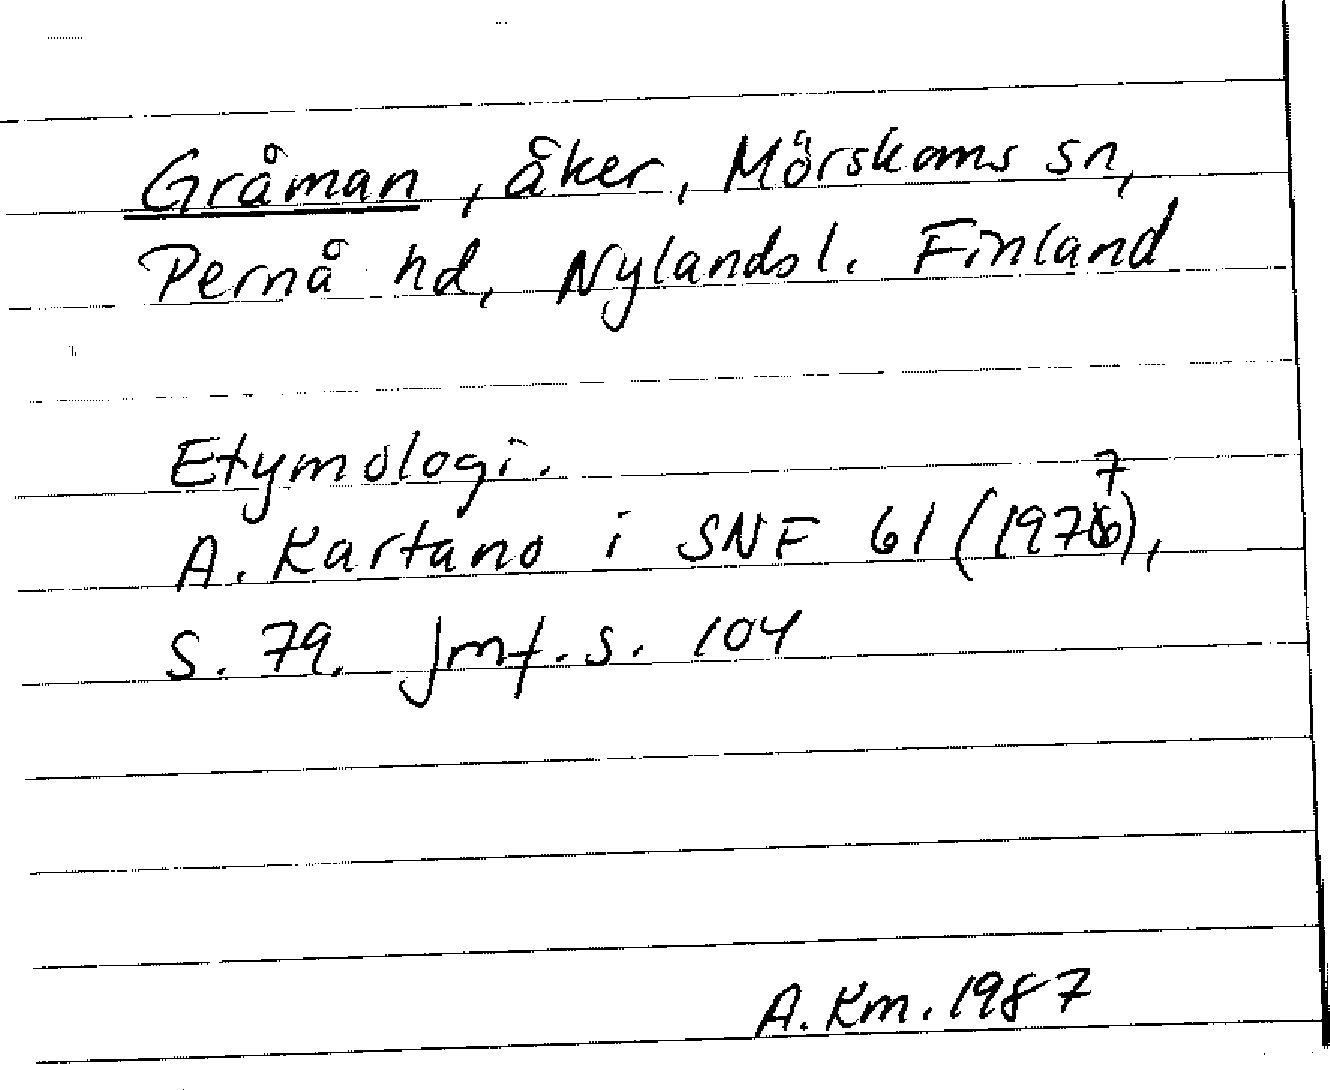 Gråman, åker, Mörskoms sn,
Pernå hd, Nylandsl. Finland
Etymologi.
A. Kartano i SNF 61 (1977),
S. 79. Jmf. s. 104
A. Km. 1987